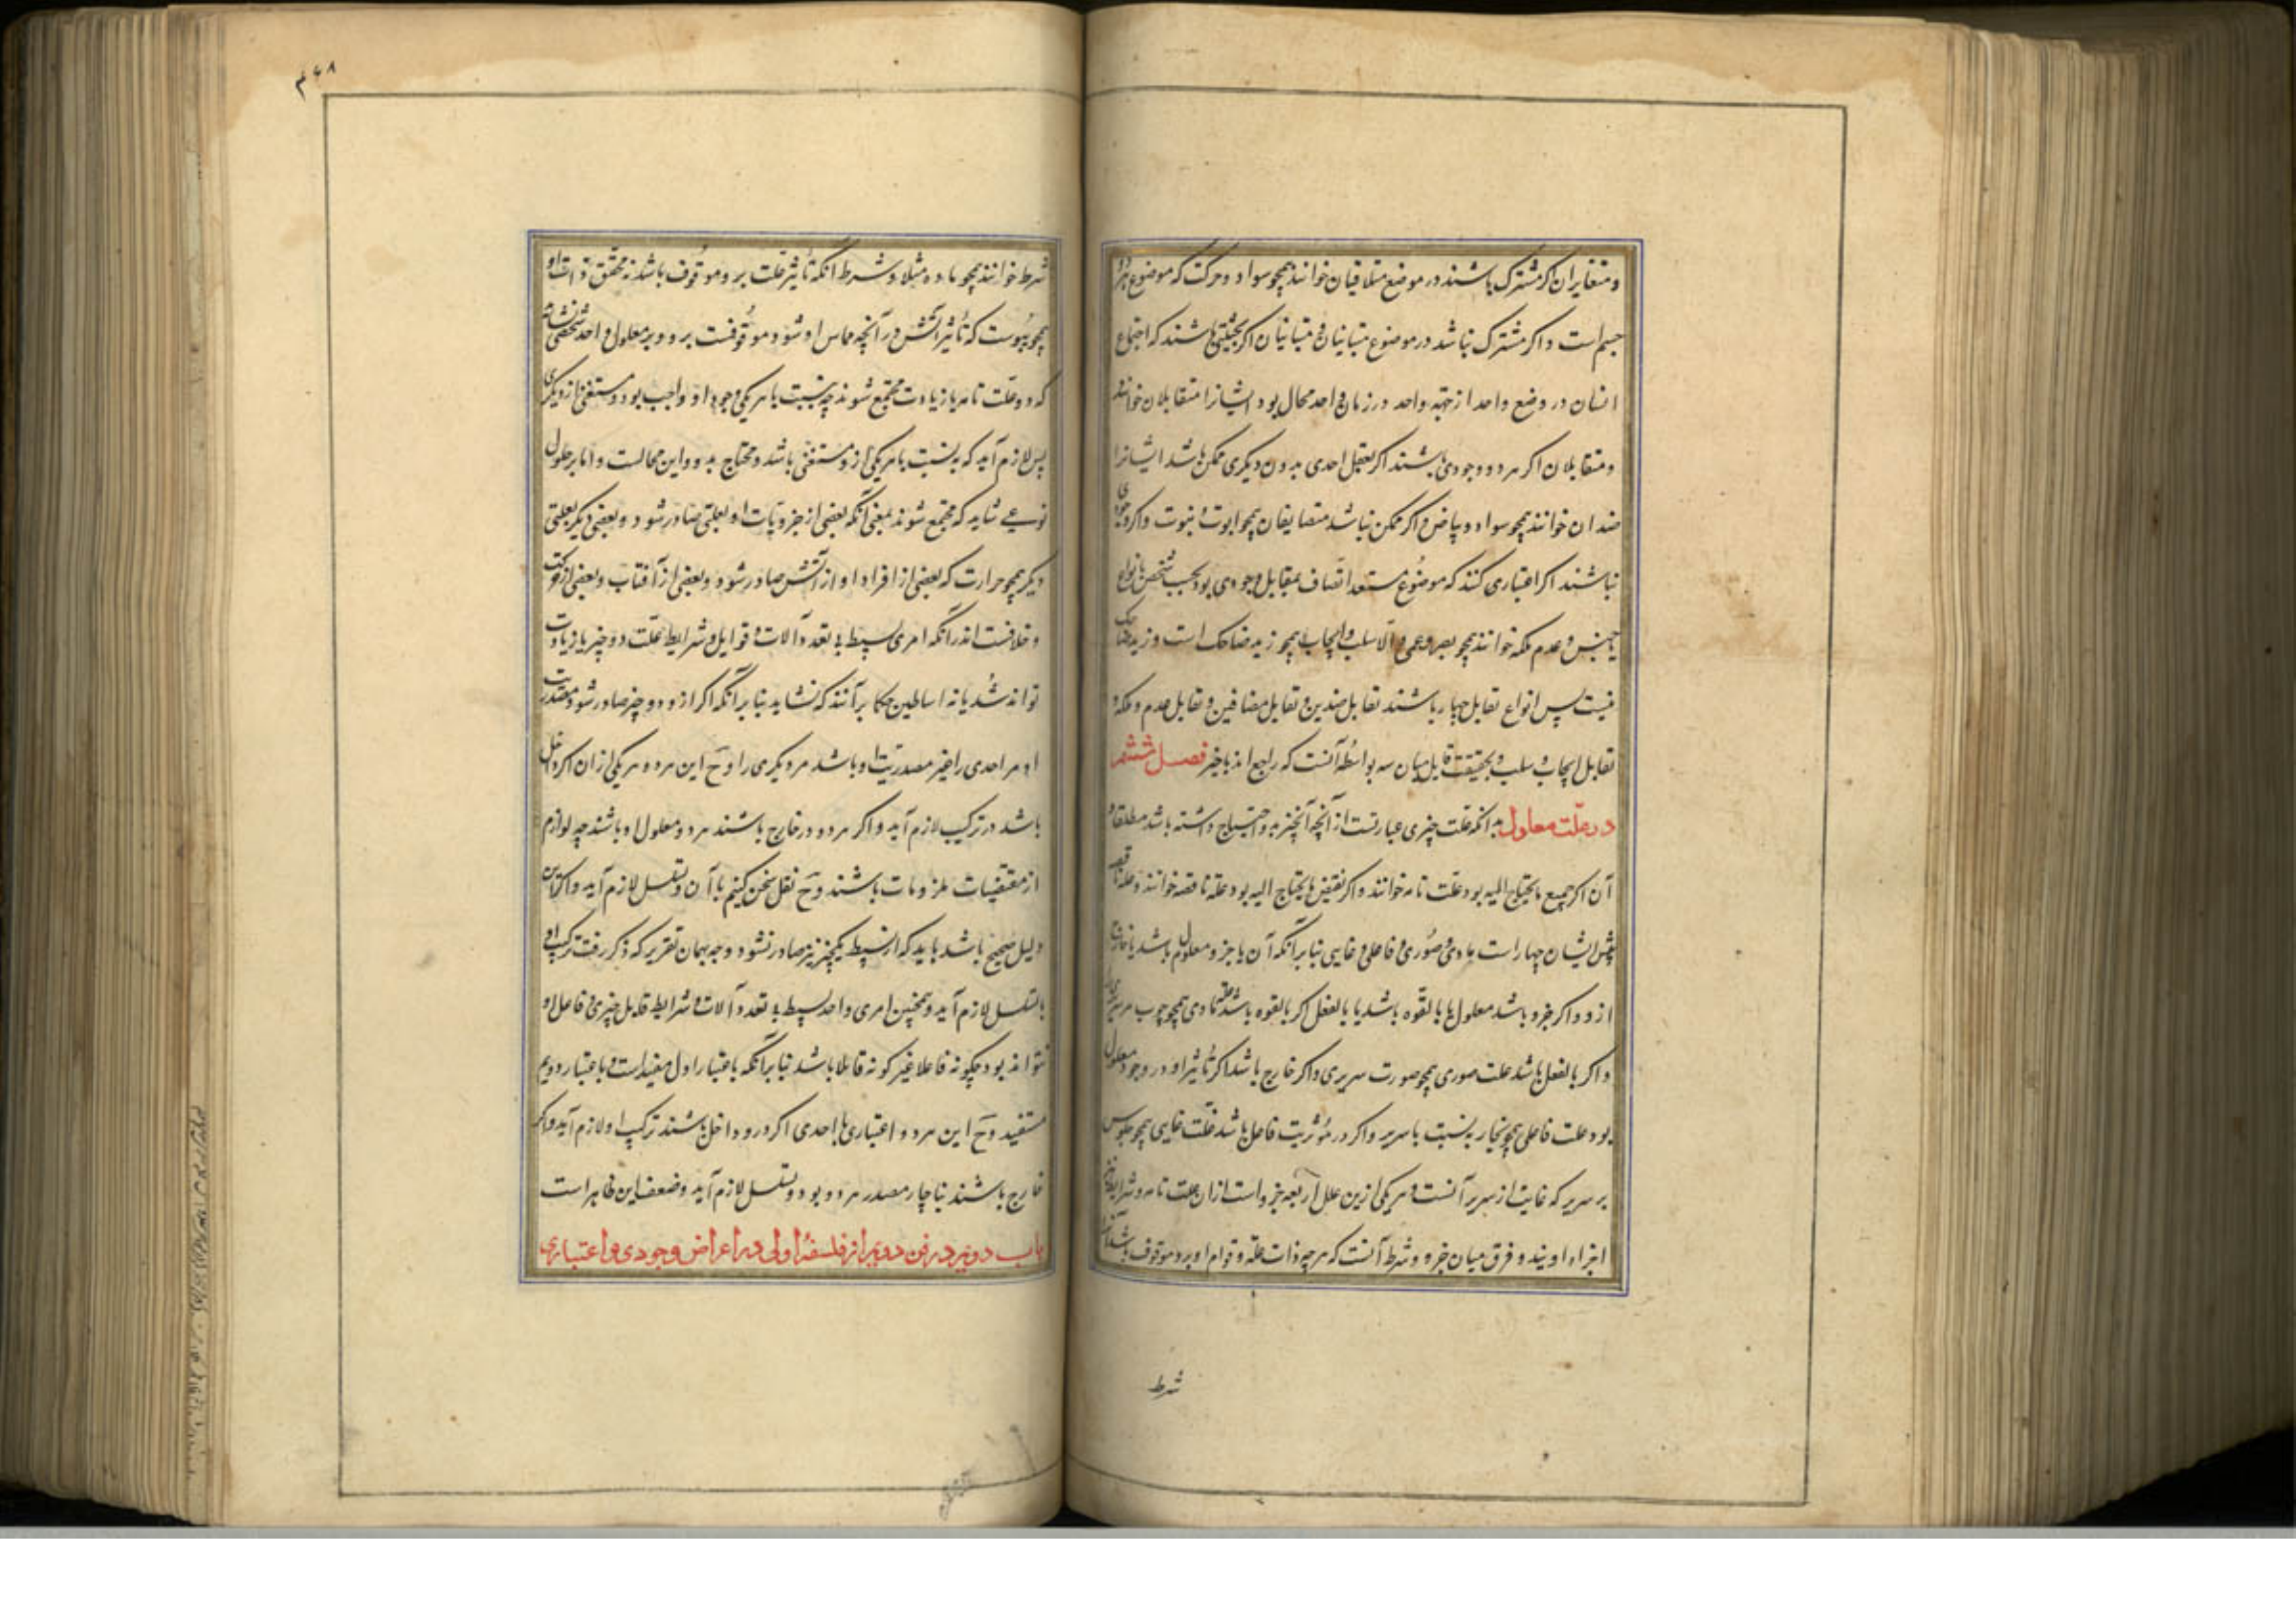 و متغایران اگر مشترک باشند در موضع متلاقیان خوانند همچو سواد و حرکت که موضوع هر دو
جسم است و اگر مشترک نباشد در موضوع متباینان و متباینان اگر بحیثیتی باشند که اجتماع
ایشان در وضع واحد از جهة واحد در زمان واحد محال بود ایشانرا متقابلان خوانند
و متقابلان اگر هر دو وجودی باشند اگر تعقل احدی بدون دیگری ممکن باشد ایشانرا
ضدان خوانند همچو سواد و بیاض و اگر ممکن نباشد متضایفان همچو ابوت و نبوت و اگر وجودی
نباشند اگر اعتباری کنند که موضوع مستعد اتصاف بمقابل وجودی بود بحسب شخص یا نوع
یا جنس عدم ملکه خوانند همچو بصر و عمی والا سلب و ایجاب همچو زید ضاحک است و زید ضاحک
نیست پس انواع تقابل چهار باشند تقابل ضدین و تقابل مضافین و تقابل عدم و ملکه و
تقابل ایجاب و سلب و بحقیقت تقابل میان سه بواسطه آنست که راجع اند باخیر فصل ششم
در علت معلول بدانکه علت چیزی عبارتست از آنچه آنچیز بدو احتیاج داشته باشد مطلقا و
آن اگر جمیع ما یحتاج الیه بود علت تامه خوانند و اگر بعض ما یحتاج الیه بود علة ناقصه خوانند و علة ناقصه
پس ایشان چهار است مادی و صوری و فاعلی و غایی بنا برآنکه آن یا جزو معلول باشد یا خارج
ازو و اگر جزو باشد معلول یا بالقوه باشد یا بالفعل اگر بالقوه باشد علت مادی همچو چوب مر سریر را
و اگر بالفعل باشد علت صوری همچو صورت سریری و اگر خارج باشد اگر تأثیر او در وجود معلول
بود علت فاعلی همچو نجار به نسبت با سریر و اگر در مؤثریت فاعل باشد علت غایی همچو جلوس
بر سریر که غایت از سریر آنست و هر یکی ازین علل اربعه جزو است از ان علت تامه و شرایط
اجزاء اویند و فرق میان جزو و شرط آنست که هر چه ذات علة و قوام او برو موقوف باشد
شرط
۴۶۸
شرط خوانند همچو ماده مثلا و شرط آنکه تأثیر علت برو موقوف باشد نه تحقق ذات او
همچو یبوست که تأثیر آتش در آنچه مماس او شود موقوفست برو و بر معلول واحد شخصی نشاید
که دو علت تامه یا زیادت مجتمع شوند چه بنسبت با هر یکی وجود او واجب بود و مستغنی از دیگری
پس لازم آید که به نسبت با هر یکی ازو مستغنی باشد و محتاج بدو و این محالست و اما بر معلول
نوعی شاید که مجتمع شوند بمعنی آنکه بعضی از جزویات او بعلتی صادر شود و بعضی دیگر بعلتی
دیگر همچو حرارت که بعضی از افراد او از آتش صادر شود و بعضی از آفتاب و بعضی از حرکت
و خلافست اندر آنکه امری بسیط بی تعدد آلات و قوابل و شرایط علت دو چیز یا زیادت
تواند شد یا نه اساطین حکما برآنند که نشاید بنا برآنکه اگر ازو دو چیز صادر شود مصدریت
او مر احدی را غیر مصدریت او باشد مر دیگری را و ح این هر دو هر یکی ازان اگر داخل
باشد درو ترکیب لازم آید و اگر هر دو خارج باشند هر دو معلول او باشند چه لوازم
از مقتضیات ملزومات باشند و ح نقل سخن کنیم با آن و تسلسل لازم آید و اگر این
دلیل صحیح باشد باید که از بسیط یکچیز نیز صادر نشود و چه بهمان تقریر که ذکر رفت ترکب او
یا تسلسل لازم آید و همچنین امری واحد بسیط بی تعدد آلات و شرایط قابل چیزی و فاعل او
نتواند بود چگونه فاعلا غیر گونه قابلا باشد بنا برآنکه باعتبار اول مفید است و باعتبار دویم
مستفید و ح این هر دو اعتباری یا احدی اگر درو داخل باشند ترکیب او لازم آید و اگر
خارج باشند ناچار مصدر هر دو بود و تسلسل لازم آید و ضعف این ظاهر است
باب دویم در فن دویم از فلسفهٔ اولی در اعراض وجودی و اعتباری